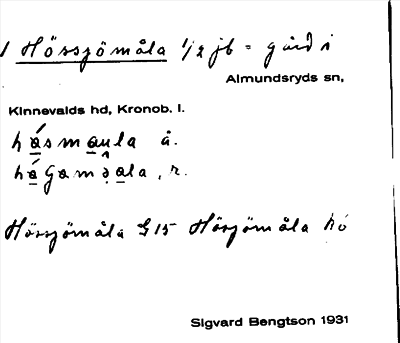 1 Hössjömåla 1/2 jb = gård i
Almundsryds sn,
Kinnevalds hd, Kronob. l.
hásmaula å.
Hössjömåla G 15 Hösjömåla hö
Sigvard Bengtson 1931